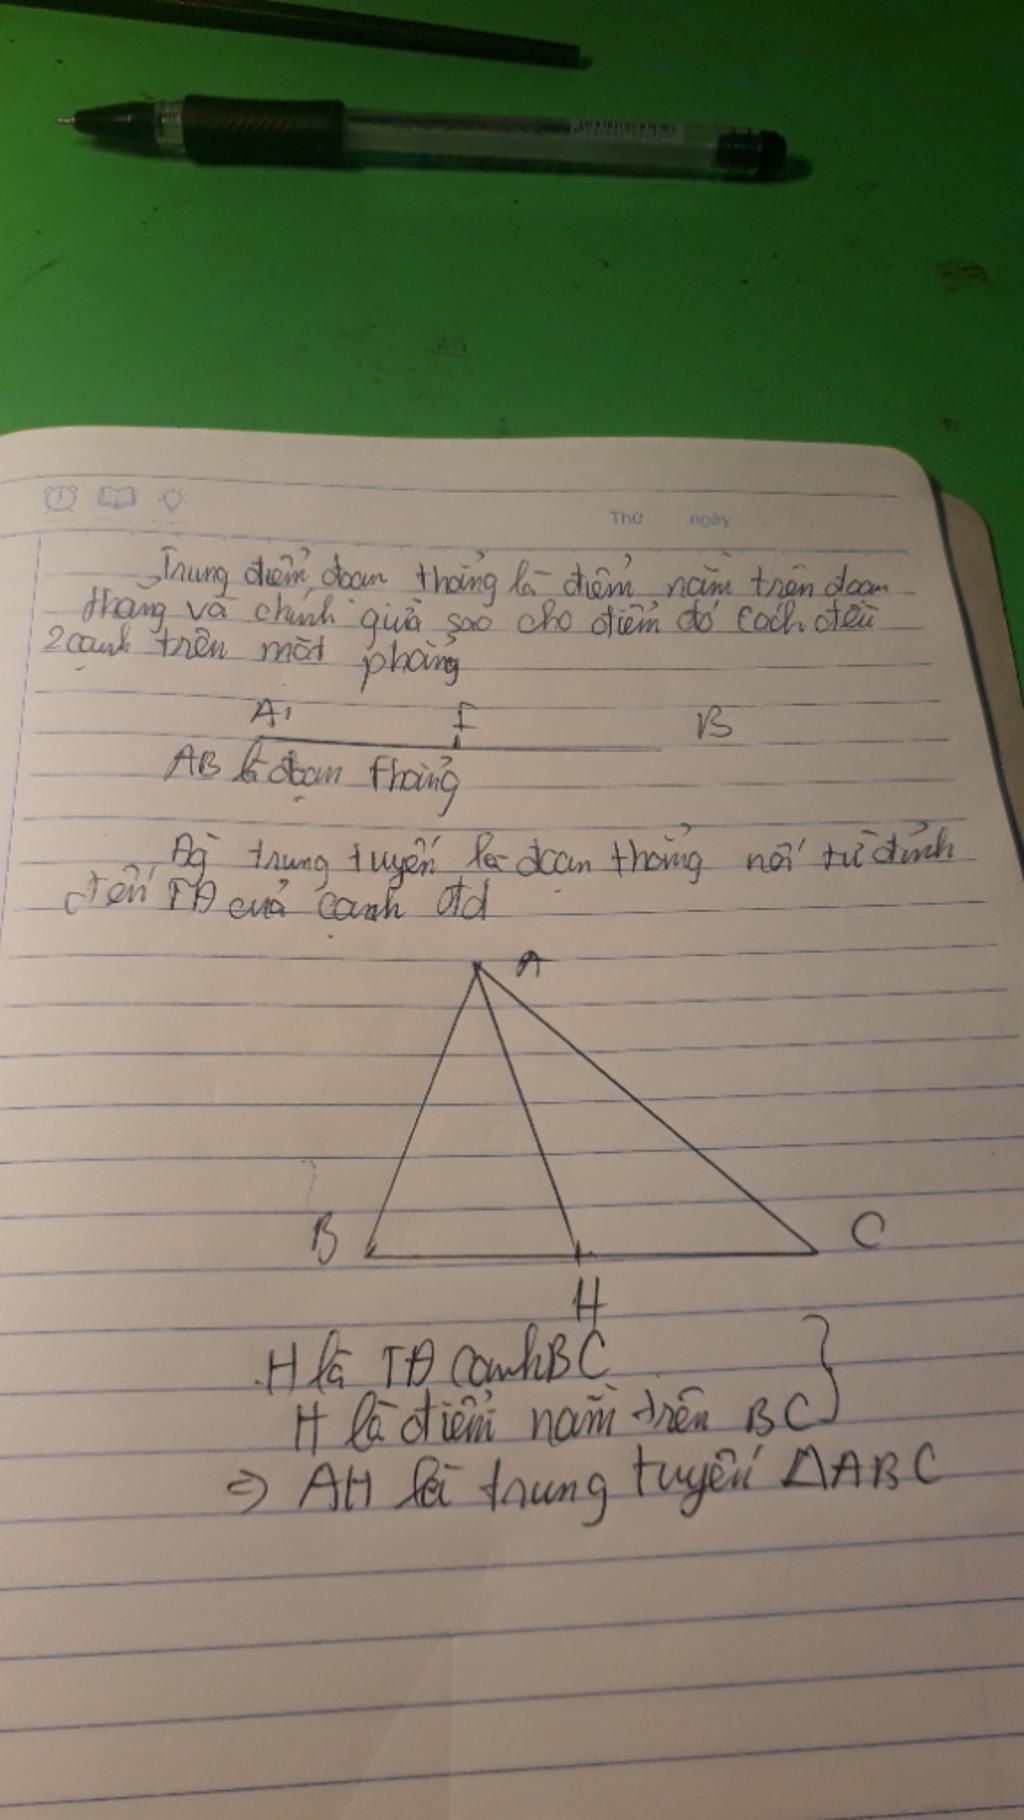 Thứ ngày
Trung điểm đoạn thẳng là điểm nằm trên đoạn
thẳng và chính giữa sao cho điểm đó cách đều
2 cạnh trên mặt phẳng
A I B
AB là đoạn thẳng
trung tuyến là đoạn thẳng nối từ đỉnh
đến TĐ của cạnh đd
A
B C
H
H là TĐ cạnh BC
H là điểm nằm trên BC }
⇒ AH là trung tuyến ΔABC